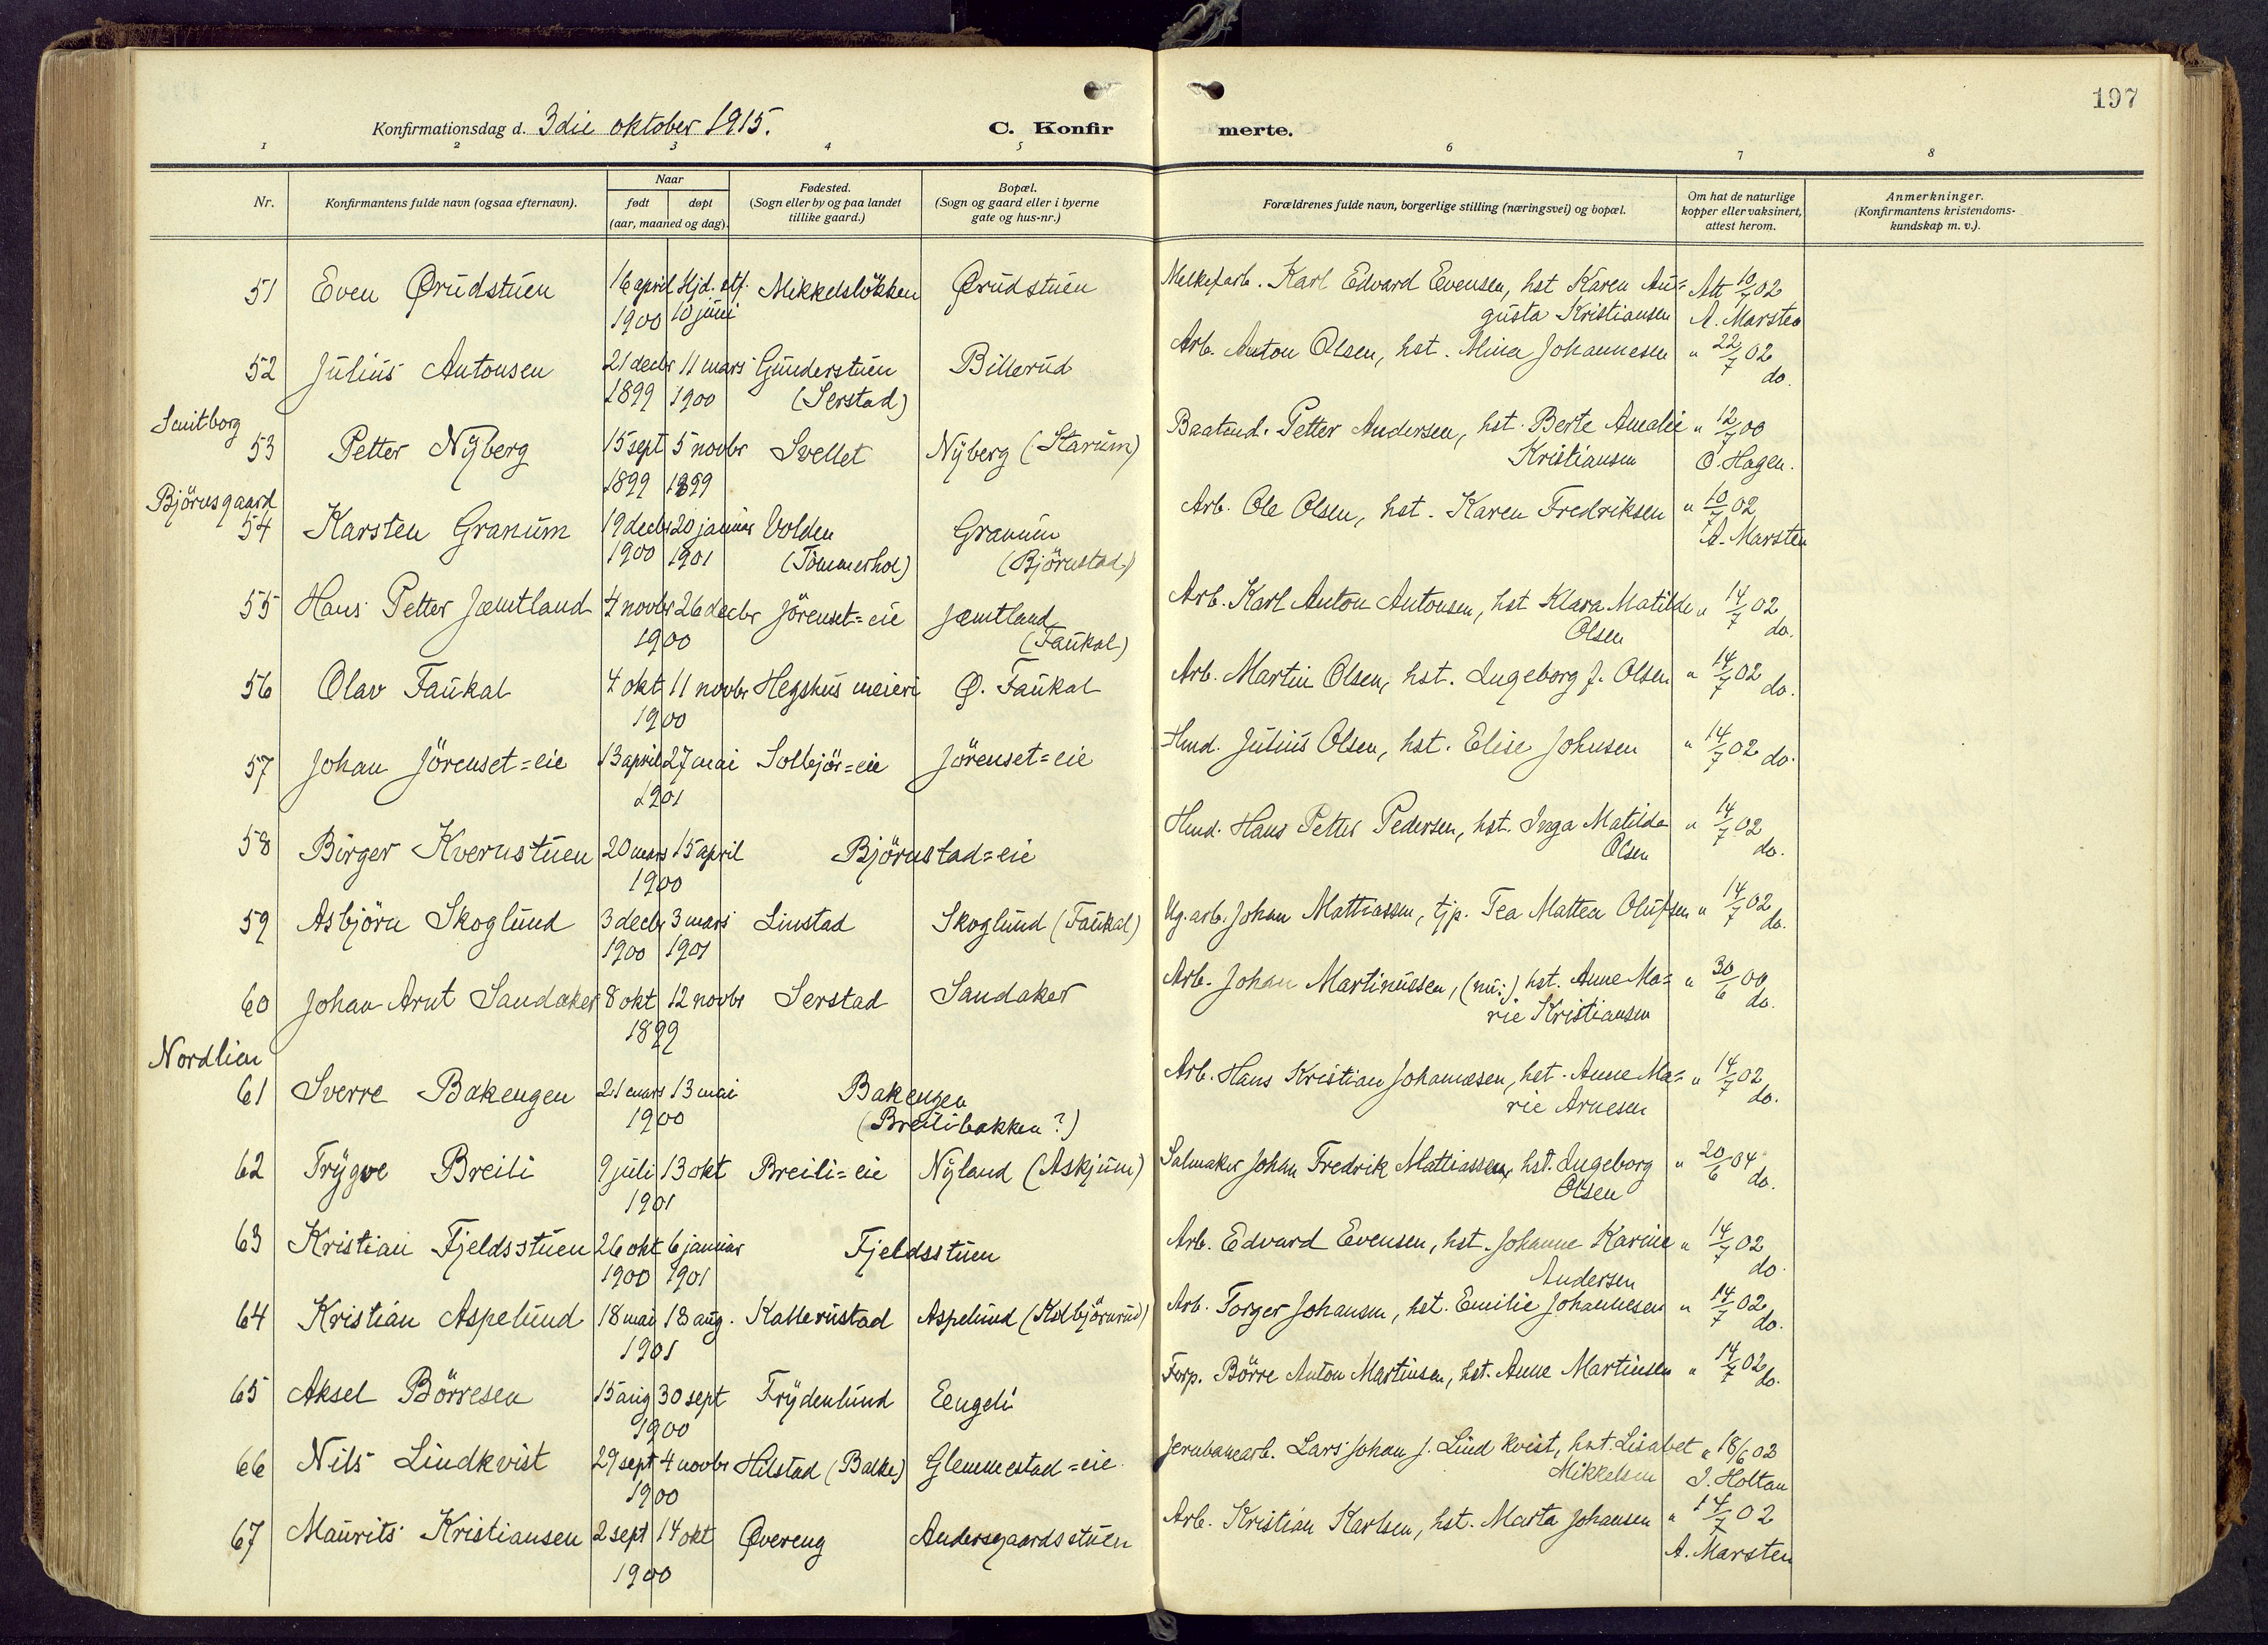 197
Konfirmationsdag d. 3die oktober 1915. C. Konfirmerte.
1 2 3 4 5 6 7 8
Nr. Konfirmantens fulde navn (ogsaa efternavn). Naar født døpt (aar, maaned og dag). Fødested. (Sogn eller by og paa landet tillike gaard.) Bopæl. (Sogn og gaard eller i byerne gate og hus-nr.) Forældrenes fulde navn, borgerlige stilling (næringsvei) og bopæl. Om hat de naturlige kopper eller vaksinert, attest herom. Anmerkninger. (Konfirmantens kristendoms-kundskap m. v.).
51 Even Ørudstuen 16 april Hjd. 10 juni Mikkelslökken Ørudstuen Karl Edvard Evensen, hst Karen Au= Att 10/7 02
1900 gusta Kristiansen A. Marsten
52 Julius Antonsen 21 decbr 11 mars Gunderstuen Billerud Arb. Anton Olsen, hst. Mina Johannesen " 22/7 02
1899 1900 (Serstad) do.
53 Petter Nyberg 15 sept 5 novbr Svellet Nyberg (Starum) Petter Andersen, hst. Berte Amalie " 12/7 00
1899 1899 Kristiansen O. Hagen.
Björnsgaard
54 Karsten Granum 19 decbr 20 januar Volden Granum Arb. Ole Olsen, hst. Karen Fredriksen " 10/7 02
1900 1901 (Tömmerhol) (Björnstad) A. Marsten
55 Hans Petter Jæmtland 4 novbr 26 decbr Jörenset=eie Jæmtland Arb. Karl Anton Antonsen, hst Klara Matilde " 14/7 02
1900 (Faukal) Olsen do.
56 Olav Faukal 4 okt 11 novbr Hegshus meieri Ø. Faukal Arb. Martin Olsen, hst. Ingeborg J. Olsen " 14/7 02 do.
1900
57 Johan Jörenset=eie 13 april 27 mai Solbjör=eie Jörenset=eie Hmd. Julius Olsen, hst. Elise Johnsen " 14/7 02 do.
1901
58 Birger Kvernstuen 20 mars 15 april Björnstad=eie Hmd. Hans Petter Pedersen, hst. Inga Matilde " 14/7 02
1900 Olsen do.
59 Asbjörn Skoglund 3 decbr 3 mars Linstad Skoglund (Faukal) Ug. arb. Johan Mattiassen, tjp. Tea Mattea Olufsen " 14/7 02
1900 1901 do.
60 Johan Arnt Sandaker 8 okt 12 novbr Serstad Sandaker Arb. Johan Martinussen, (nu:) hst. Anne Ma= " 30/6 00
1899 rie Kristiansen do.
Nordlien
61 Sverre Bakengen 21 mars 13 mai Bakengen Arb. Hans Kristian Johannesen, hst. Anne Ma= " 14/7 02
1900 (Breilibakken?) rie Arnesen do.
62 Trygve Breili 9 juli 13 okt Breili=eie Nyland (Askjum) Salmaker Johan Fredrik Mattiassen, hst. Ingeborg " 20/6 04
1901 Olsen do.
63 Kristian Fjeldsstuen 26 okt 6 januar Fjeldsstuen Arb. Edvard Evensen, hst. Johanne Karine " 14/7 02
1900 1901 Andersen do.
64 Kristian Aspelund 18 mai 18 aug. Kallerustad Aspelund (Kolbjörnrud) Arb. Torger Johansen, hst. Emilie Johannesen " 14/7 02
1901 do.
65 Aksel Börresen 15 aug 30 sept Frydenlund Eengeli Forp. Börre Anton Martinsen, hst. Anne Martinsen " 14/7 02
1900 do.
66 Nils Lindkvist 29 sept 4 novbr Hilstad (Balke) Glemmestad=eie Jernbanearb. Lars Johan J. Lindkvist, hst. Lisabet " 18/6 02
1900 Mikkelsen J. Holtan
67 Maurits Kristiansen 2 sept 14 okt Övereng Andersgaardsstuen Arb. Kristian Karlsen, hst. Marta Johansen " 14/7 02
1900 A. Marsten